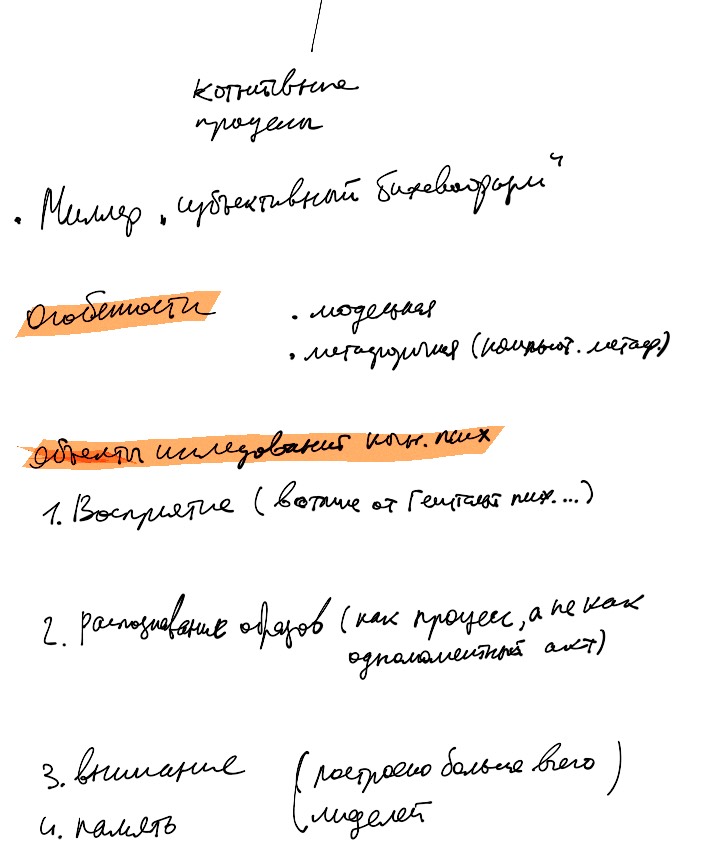 когнитивные
процессы
• Миллер „субъективный бихевиоризм“
Особенности
• модельная
• метафоричная (компьют. метаф.)
Объекты исследований когн. псих
1. Восприятие (в отличие от Гештальт псих...)
2. распознавание образов (как процесс, а не как
одномоментный акт)
3. внимание (построено больше всего)
4. память (моделей